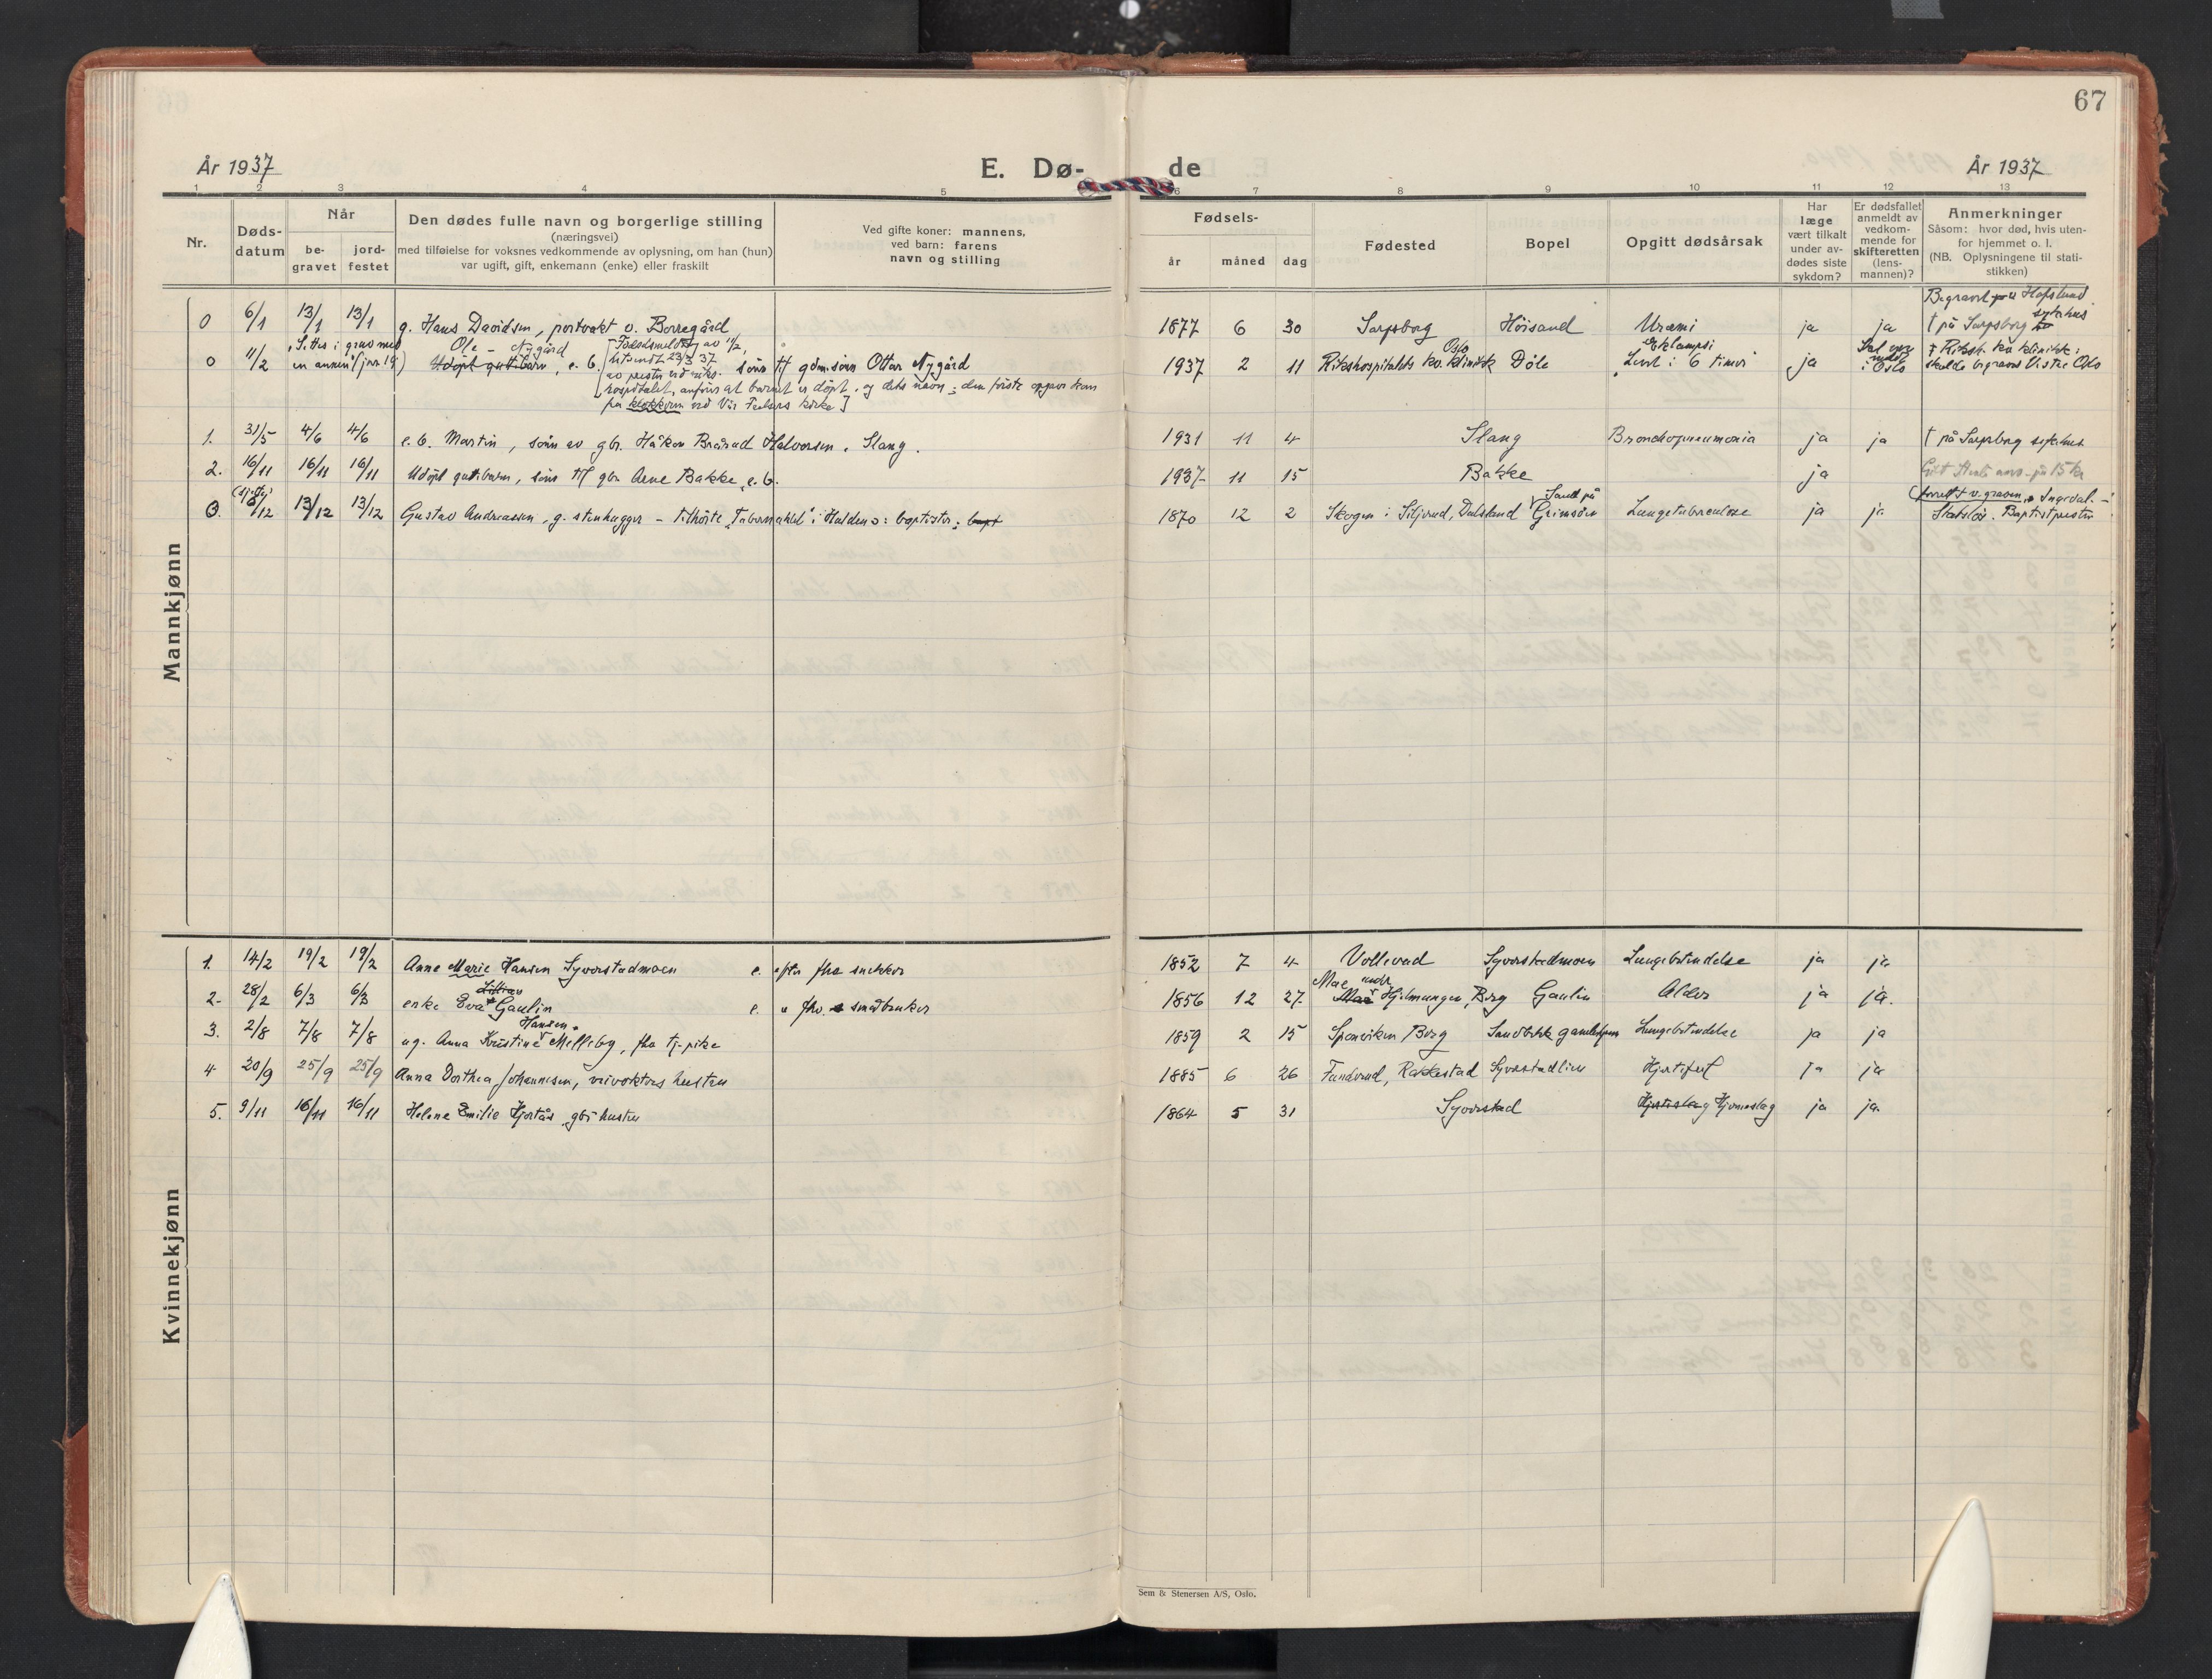 67
År 1937
E. Dø-
de
År 1937
1 2 3 4 5 6 7 8 9 10 11 12 13
Nr.
Døds-
datum
Når
be-
gravet
jord-
festet
Den dødes fulle navn og borgerlige stilling
(næringsvei)
med tilføielse for voksnes vedkommende av oplysning, om han (hun)
var ugift, gift, enkemann (enke) eller fraskilt
Ved gifte koner: mannens,
ved barn: farens
navn og stilling
Fødsels-
år måned dag
Fødested
Bopel
Opgitt dødsårsak
Har
læge
vært tilkalt
under av-
dødes siste
sykdom?
Er dødsfallet
anmeldt av
vedkom-
mende for
skifteretten
(lens-
mannen)?
Anmerkninger
Såsom: hvor død, hvis uten-
for hjemmet o. l.
(NB. Oplysningene til stati-
stikken)
Mannkjønn
0 6/1 13/1 13/1 g. Hans Davidsen, portvakt v. Borregård 1877 6 30 Sarpsborg Höisand Uræmi ja ja
Begravet på Hafslund
† på Sarpsborg sykehus
0 11/2 Settes i grav med en annen (jvr 19) Udöpt guttebarn, e. b. sönn til gdm.sönn Ottar Nygård 1937 2 11 Rikshospitalets kv. klinikk Oslo Döle Eklampsi Levet i 6 timer ja
Ole - Nygård
[Födselsmeldtg av 11/2,
utsendt 23/3 37
av presten ved riks-
hospitalet, anförer at barnet er döpt, og dets navn; den förste oppgav kom
fra klokkeren ved Vår Frelsers kirke]
i Oslo
† Riksh. kv. klinikk:
skulde begraves Vestre Oslo
1. 31/5 4/6 4/6 e. b. Martin, sönn av gbr. Håkon Brårud Halvorsen, Slang. 1931 11 4 Slang Bronchopneumonia ja ja † på Sarpsborg sykehus
2. 16/11 16/11 16/11 Udöpt guttebarn, sönn til gbr. Arne Bakke, e. b. 1937 11 15 Bakke ja
0. (sjette) 6/12 13/12 13/12 Gustav Andreassen, g. stenhugger - tilhörte "Tabernaklet" i Halden o: baptister; bapt 1870 12 2 Skogen i Siljerud, Dalsland Sand på Grimsöen Lungetuberculose ja ja
forrett. v. graven, Ingedal.
Statslös. Baptistprest
Kvinnekjønn
1. 14/2 19/2 19/2 Anne Marie Hansen Syverstadmoen e. efter fhv snekker 1852 7 4 Vollerud Syverstadmoen Lungebetendelse ja ja
2. 28/2 6/3 6/3 enke Eva Gaulin e. " fhv. småbruker 1856 12 27 Moe under Hjelmungen, Berg Gaulin Alder ja ja.
3. 2/8 7/8 7/8 ug. Anna Kristine Hansen Melleby, fhv tj.-pike 1859 2 15 Sponviken Berg Sandbekk gamlehjem Lungebetendelse ja ja
4 20/9 25/9 25/9 Anna Dorthea Johannesen, veivokters hustru 1885 6 26 Fundrud, Rakkestad Syverstadlien Hjertefeil ja ja
5. 9/11 16/11 16/11 Helene Emilie Hjortås, gbr hustru 1864 5 31 Syverstad Hjerteslag Hjerneslag ja ja.
Sem & Stenersen A/S, Oslo.